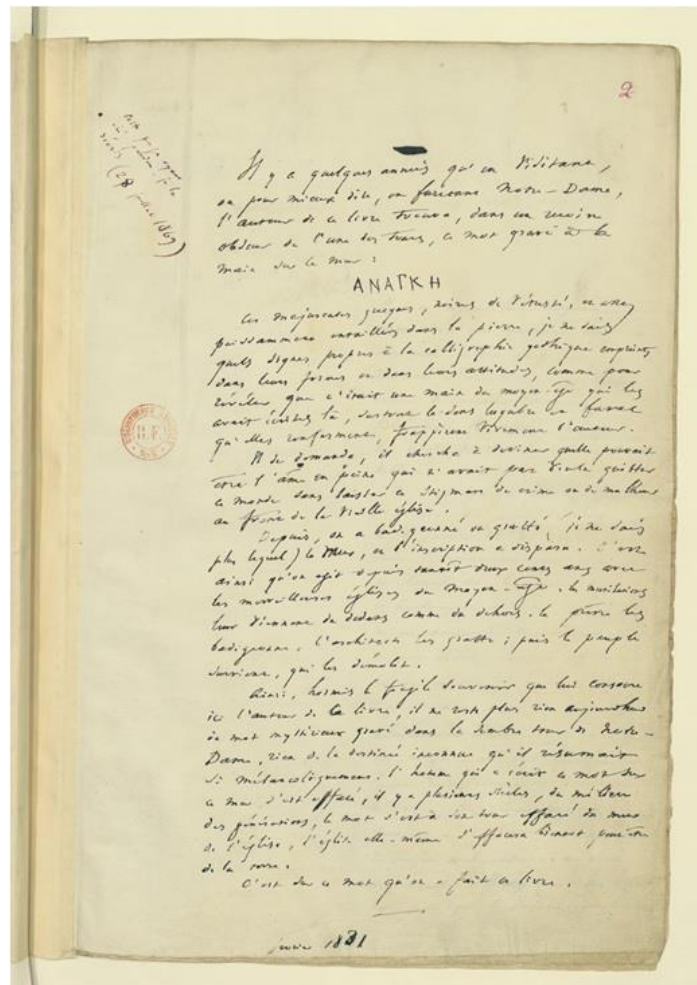 2
(28 juillet 1869)
Il y a quelques années qu'en visitant,
ou pour mieux dire, en furetant Notre-Dame,
l'auteur de ce livre trouva, dans un recoin
obscur de l'une des tours, ce mot gravé à la
main sur le mur :
ΑΝΑΓΚΗ
Ces majuscules grecques, noires de vétusté, et assez
profondément entaillées dans la pierre, je ne sais
quels signes propres à la calligraphie gothique empreints
dans leurs formes et dans leurs attitudes, comme pour
révéler que c'était une main du moyen-âge qui les
avait écrites là, surtout le sens lugubre et fatal
qu'elles renferment, frappèrent vivement l'auteur.
Il se demanda, il chercha à deviner quelle pouvait
être l'âme en peine qui n'avait pas voulu quitter
ce monde sans laisser ce stigmate de crime ou de malheur
au front de la vieille église.
Depuis, on a badigeonné ou gratté (je ne sais
plus lequel) le mur, et l'inscription a disparu. C'est
ainsi qu'on agit depuis tantôt deux cents ans avec
les merveilleuses églises du moyen-âge. les mutilations
leur viennent du dedans comme du dehors. le prêtre les
badigeonne, l'architecte les gratte ; puis le peuple
survient, qui les démolit.
Ainsi, hormis le fragile souvenir que lui consacre
ici l'auteur de ce livre, il ne reste plus rien aujourd'hui
du mot mystérieux gravé dans la sombre tour de Notre-
Dame, rien de la destinée inconnue qu'il résumait
si mélancoliquement. l'homme qui a écrit ce mot sur
ce mur s'est effacé, il y a plusieurs siècles, du milieu
des générations, le mot s'est à son tour effacé du mur
de l'église, l'église elle-même s'effacera bientôt peut-être
de la terre.
C'est sur ce mot qu'on a fait ce livre.
1831